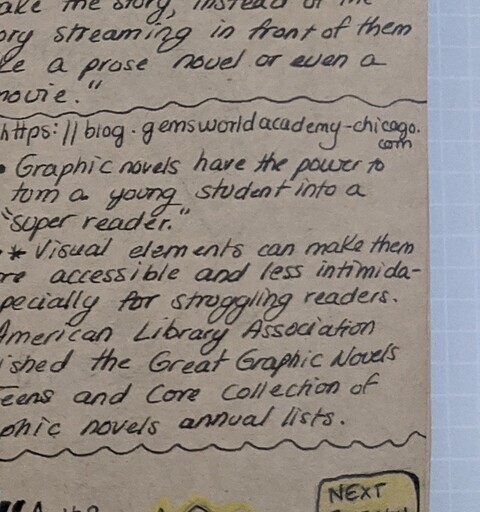 ake the story, instead of the
ory streaming in front of them
ke a prose novel or even a
movie."
https://blog.gemsworldacademy-chicago.
com
• Graphic novels have the power to
turn a young student into a
"super reader."
•* Visual elements can make them
re accessible and less intimida-
pecially for struggling readers.
American Library Association
ished the Great Graphic Novels
Teens and Core Collection of
phic novels annual lists.
NEXT